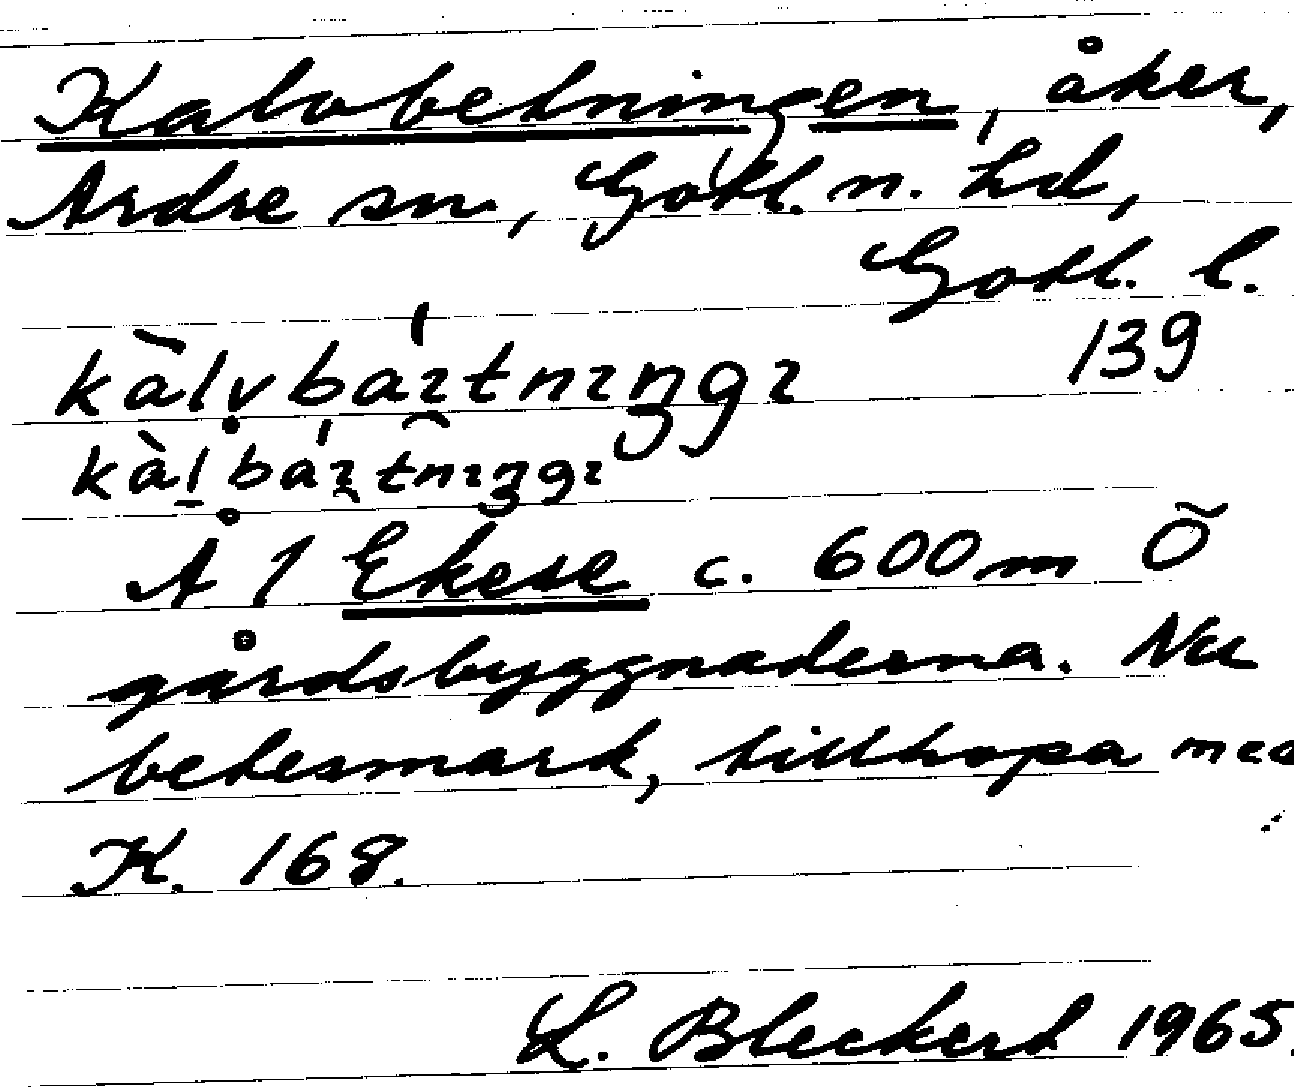 Kalvbetningen, åker,
Ardre sn, Gotl. n. hd,
Gotl. l.
139
Å 1 Ekese c. 600 m Ö
gårdsbyggnaderna. Nu
betesmark, tillhopa med
K. 168.
L. Bleckert 1965.